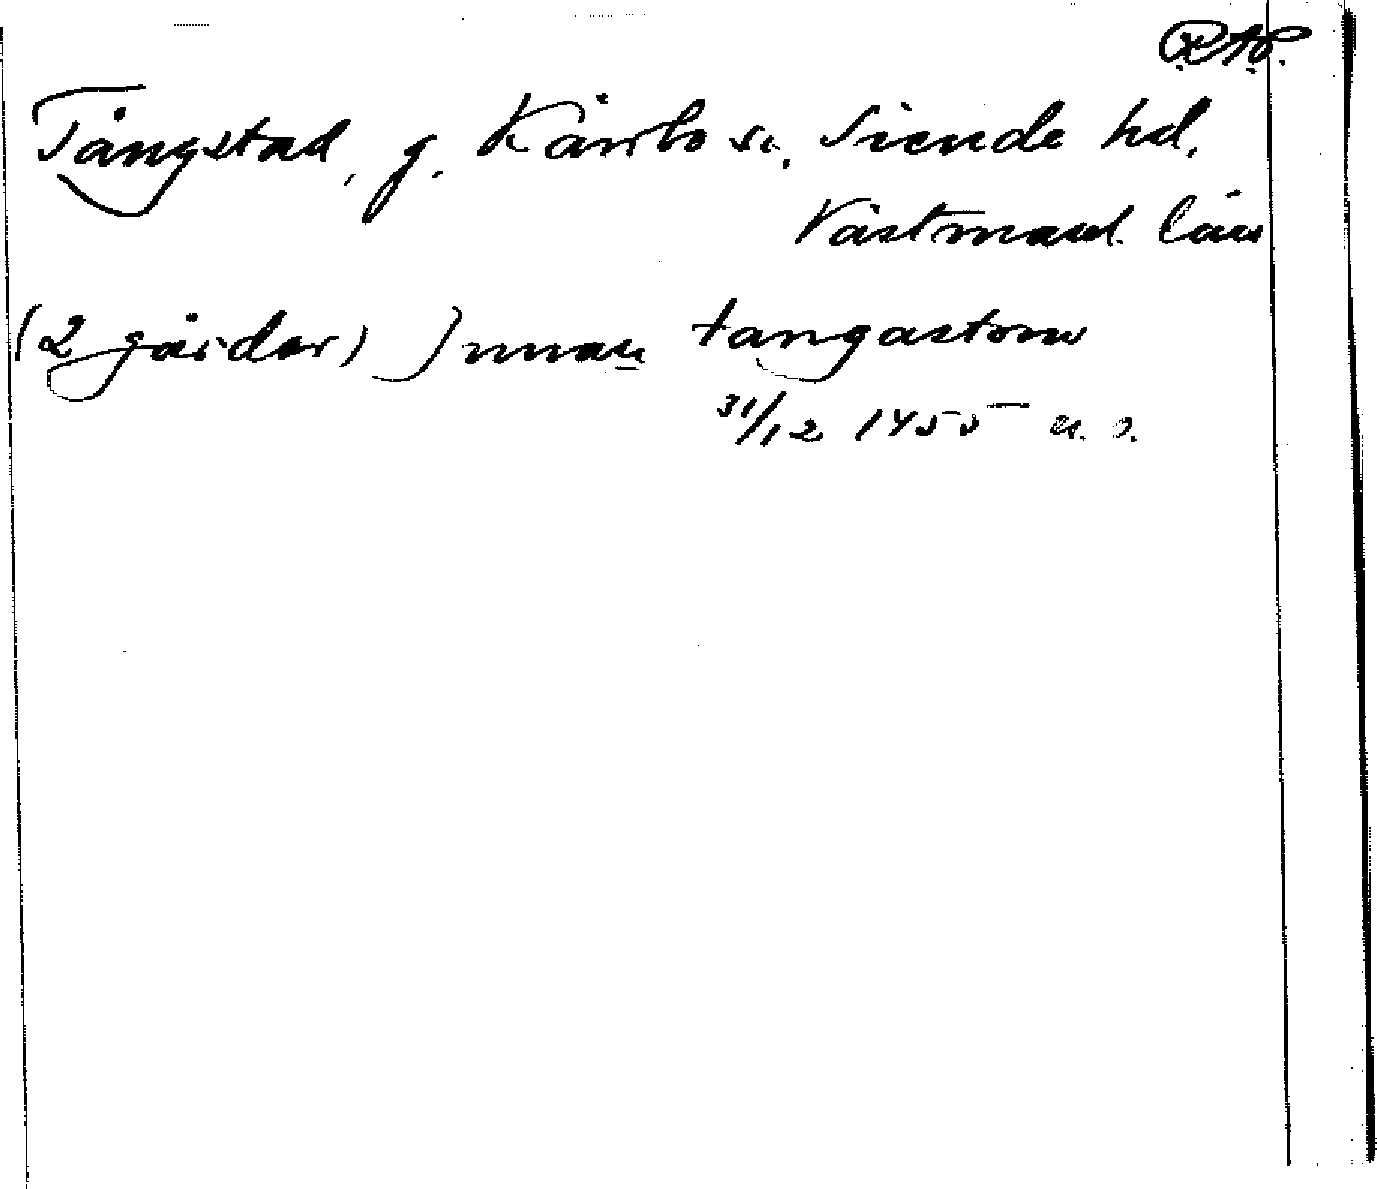 RAP.
Tångstad, g. Kärrbo sn. Siende hd.
Västmanl. län
(2 gårdar) J nnan tangastom
31/12 1455 u. s.